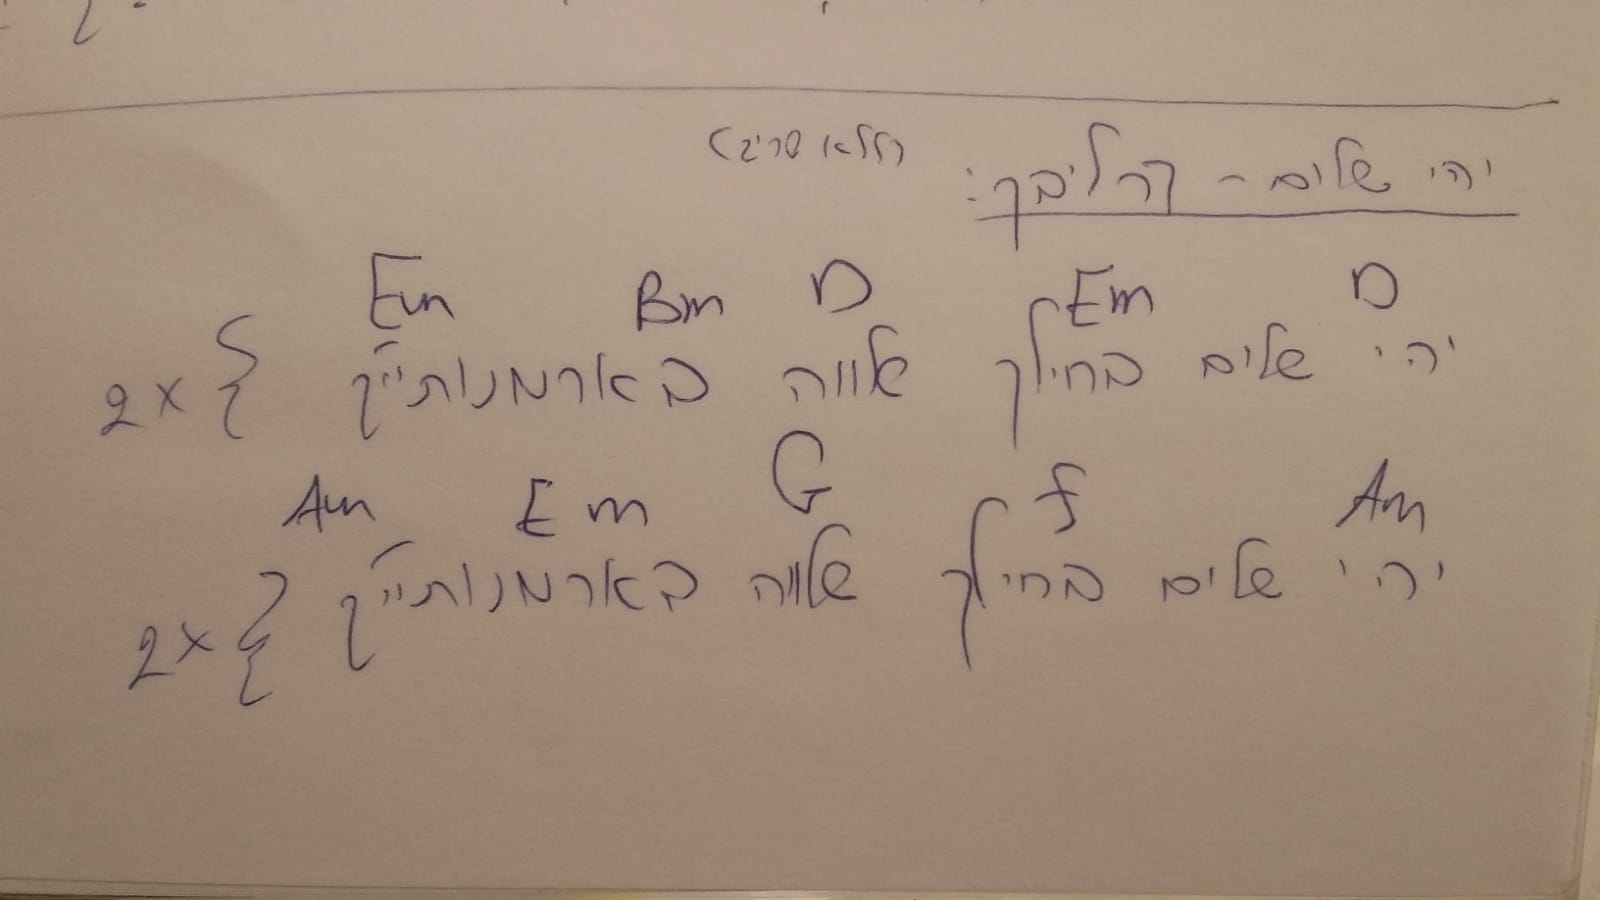 יהי שלום - קרליבך: (ללא שריב)
D Em D Bm Em
יהי שלום בחילך שלווה בארמנותייך } 2x
Am F G Em Am
יהי שלום בחילך שלווה בארמנותייך } 2x